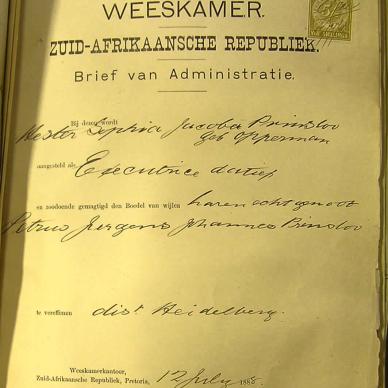 WEESKAMER.
ZUID-AFRIKAANSCHE REPUBLIEK.
Brief van Administratie.
Bij dezen wordt
Hester Sophia Jacoba Prinsloo
geb Opperman
aangesteld als Executrice datief
en zoodoende gemagtigd den Boedel van wijlen haren echtgenoot
Petrus Jurgens Johannes Prinsloo
te vereffenen dist Heidelberg.
Weeskamerkantoor,
Zuid-Afrikaansche Republiek, Pretoria, 12 July 188